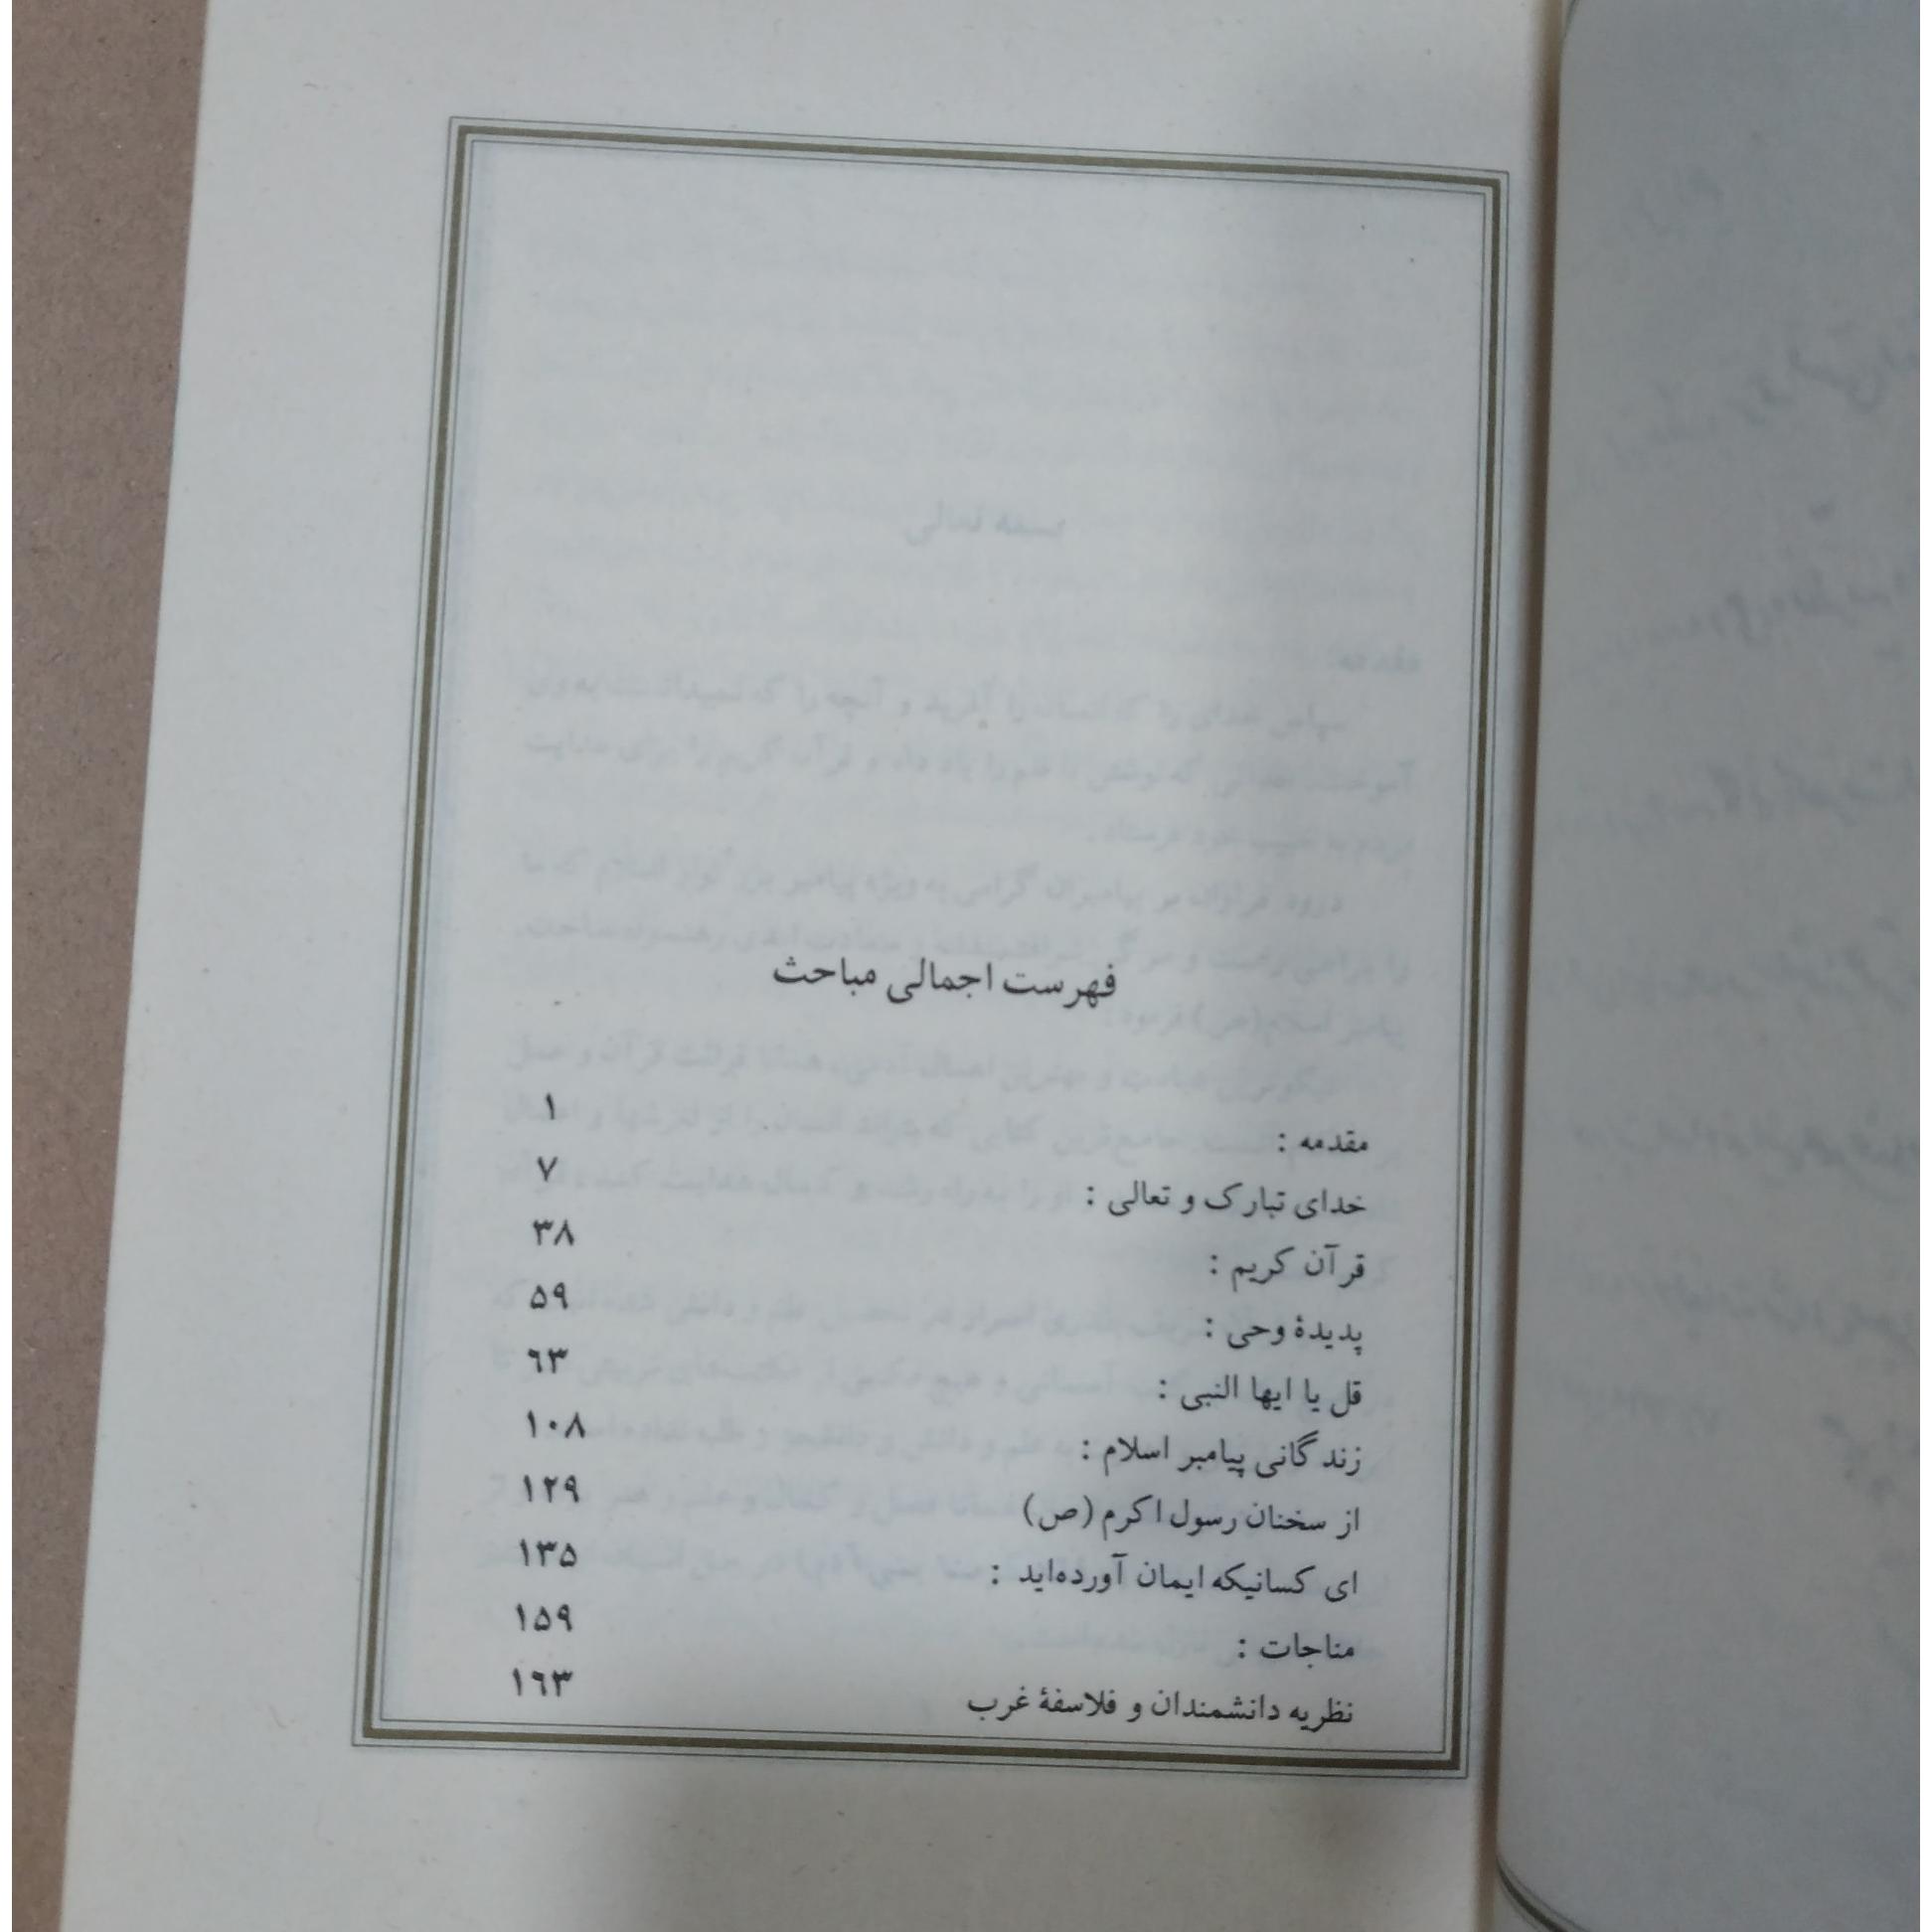 فهرست اجمالی مباحث
مقدمه : ۱
خدای تبارک و تعالی : ۷
قرآن کریم : ۳۸
پدیدهٔ وحی : ۵۹
قل یا ایها النبی : ۶۳
زندگانی پیامبر اسلام : ۱۰۸
از سخنان رسول اکرم (ص) ۱۲۹
ای کسانیکه ایمان آورده‌اید : ۱۳۵
مناجات : ۱۵۹
نظریه دانشمندان و فلاسفهٔ غرب ۱۶۳